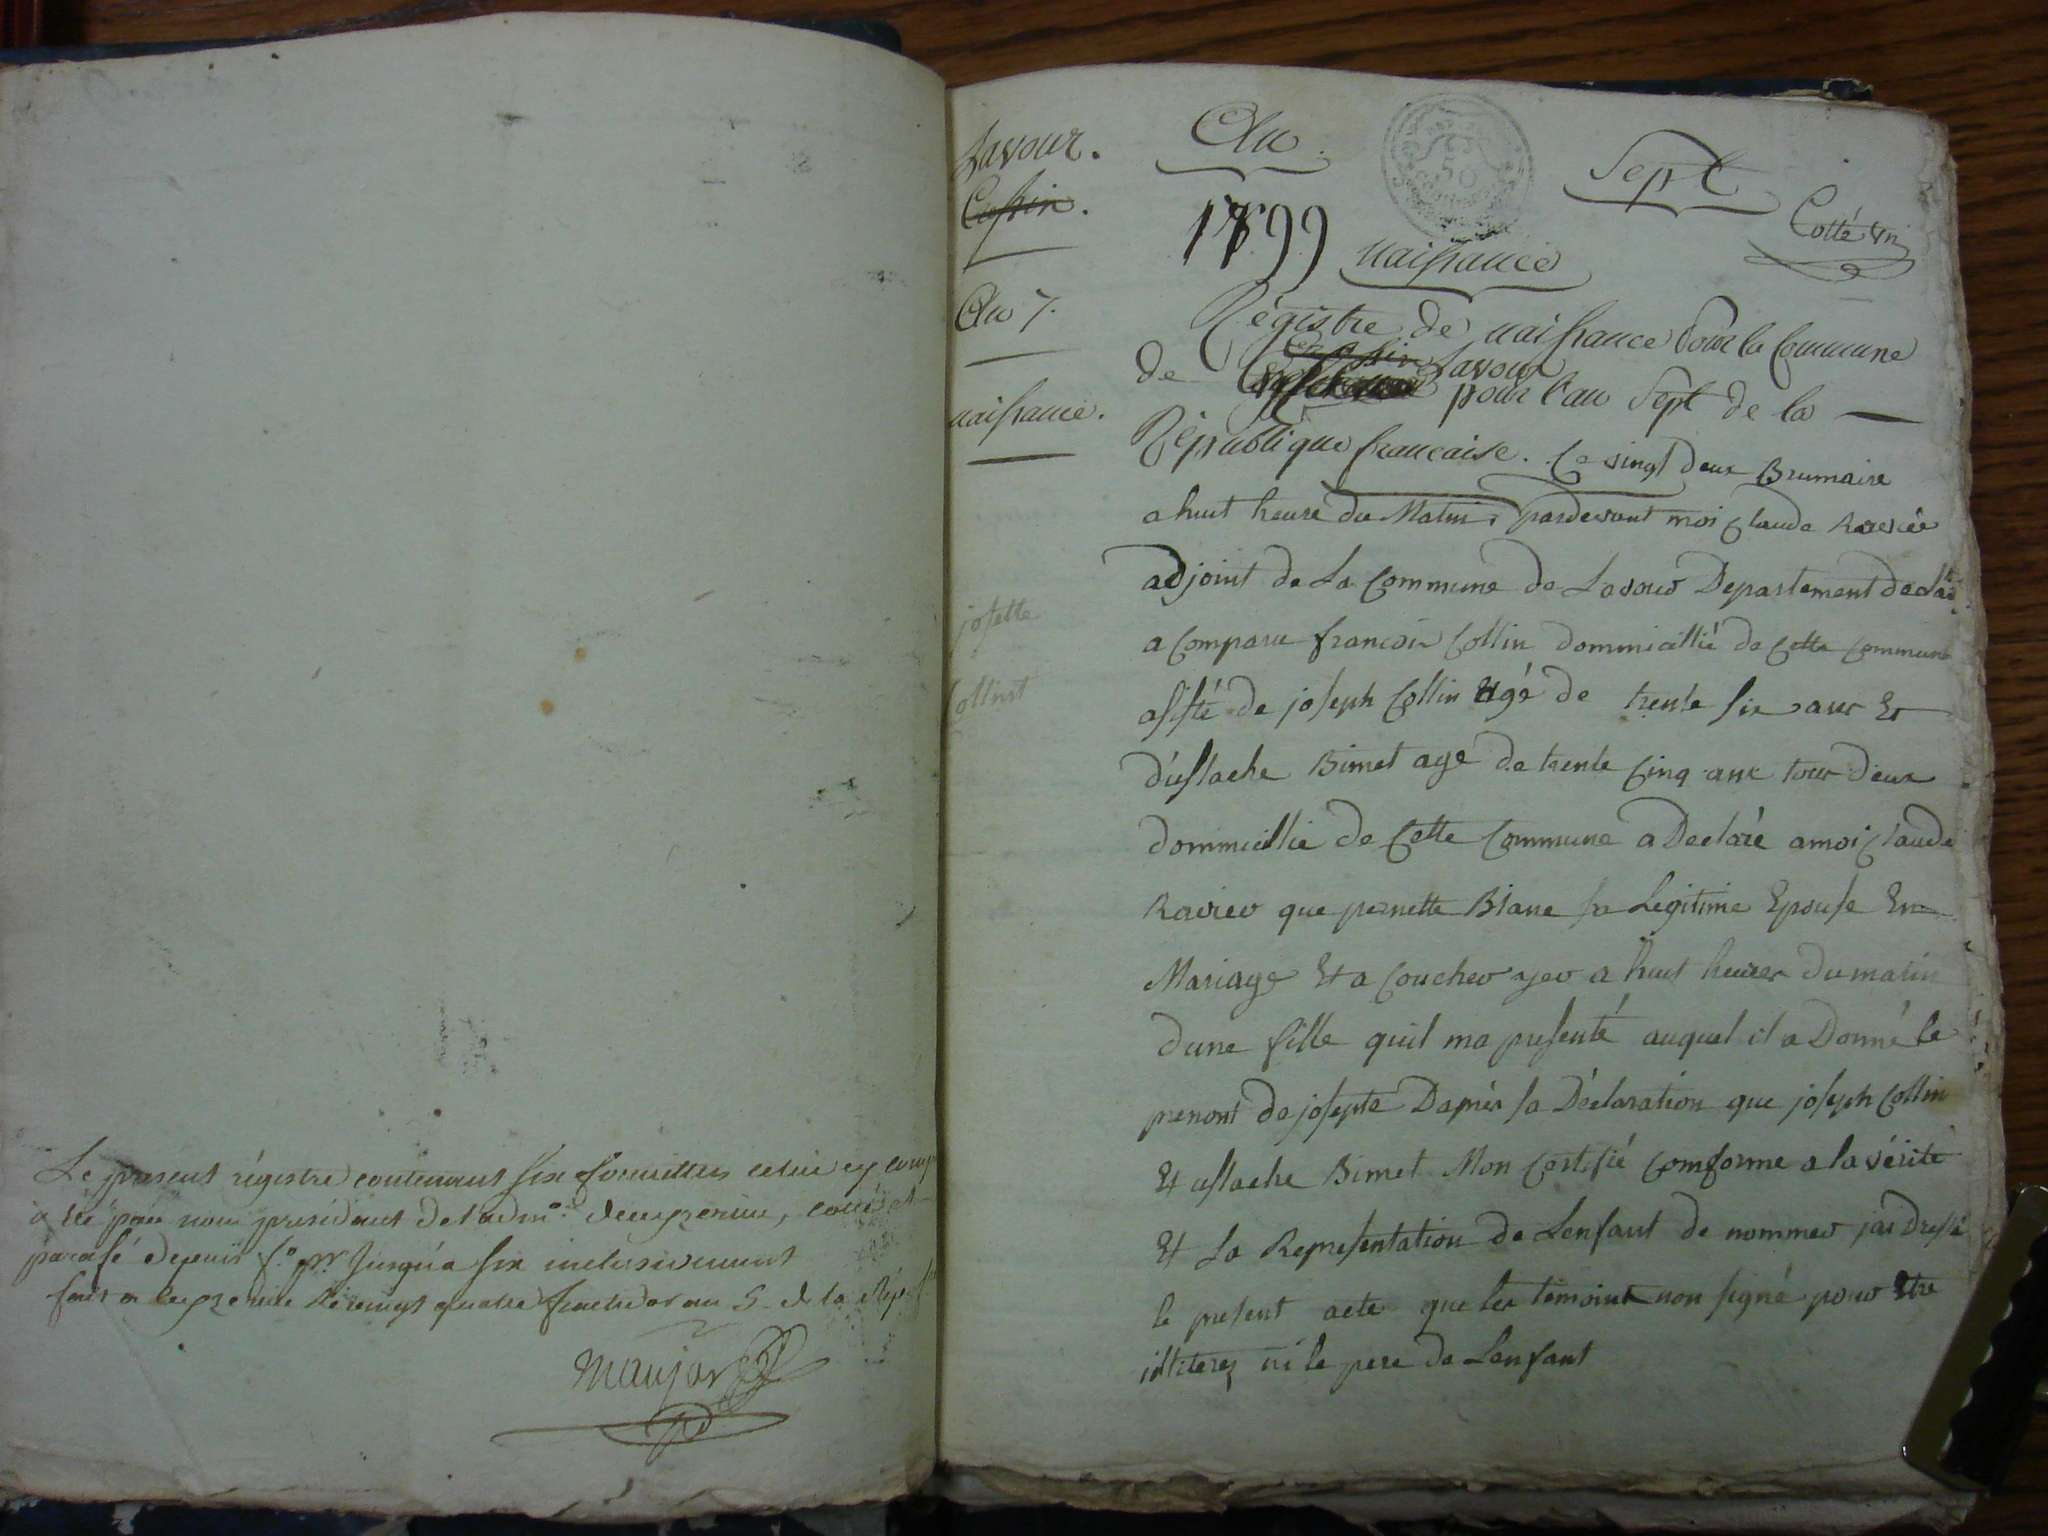 Le present régistre contenant six feuillets celui cy compris
a été par nous président de l'adm.on de ceyzerieu, cotté et
parafé depuis f.o p.r Jusqu'a six inclusivement
fait a ceyzerieu le vingt quatre fructidor an 5 de la Rep. f.
Maujot
Lavour.
Cussin.
An 7.
naissance.
josette
Collin
An.
Sept
Cotté un
1799
50
naissance
Régistre de naissance pour la Commune
de Lavour pour l'an sept de la
République francaise. Le vingt deux Brumaire
a huit heure du Matin, pardevant moi Claude Ravier
adjoint de La Commune de Lavour Departement de Lain
a Comparu francois Collin dommicillié de Cette Commune
assisté de joseph Collin agé de trente six ans Et
d'ustache Bimet agé de trente Cinq ans tous deux
dommicillie de Cette Commune a Declaré a moi Claude
Ravier que pernette Blanc sa Legitime Epouse En
Mariage Et a Coucher yer a huit heures du matin
dune fille quil ma presenté auquel il a Donné le
prenont de josepte Daprès sa Déclaration que joseph Collin
Et ustache Bimet Mon Certifié Comforme a la vérité
Et La Representation de Lenfant de nommer jai Dressé
le present acte que les temoins non signé pour Etre
illiterez ni le pere de Lenfant